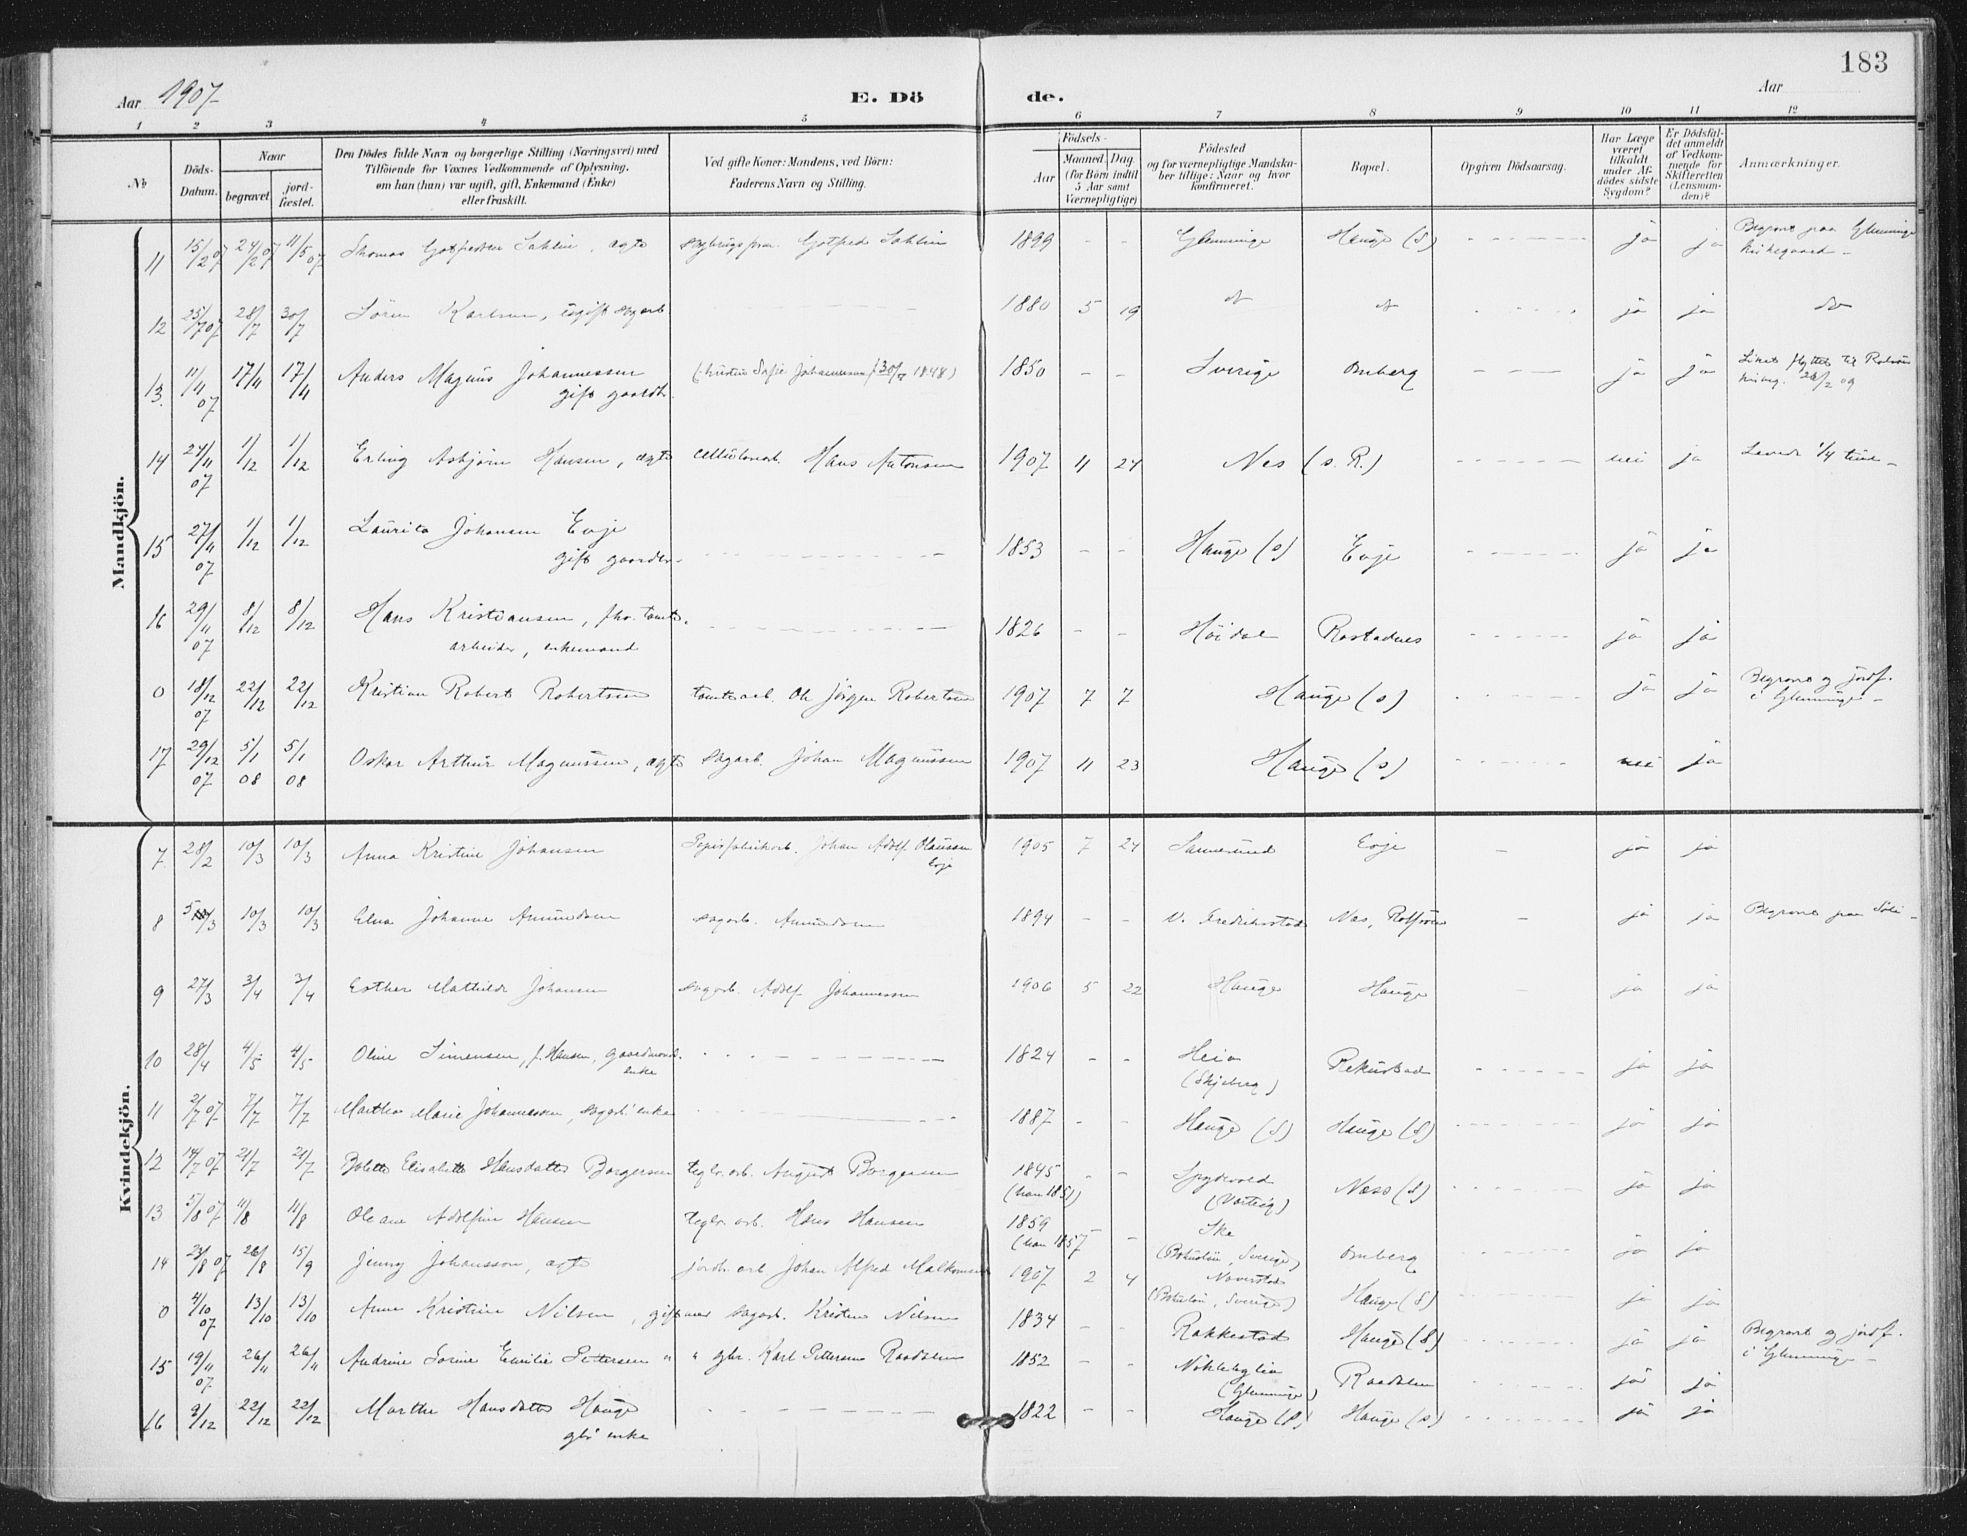 183
Aar 1907
E. Dö de.
Aar
1 2 3 4 5 6 7 8 9 10 11 12
No
Döds-Datum.
Naar
begravet
jord-fæstet.
Den Dödes fulde Navn og borgerlige Stilling (Næringsvei) med
Tilföiende for Voxnes Vedkommende af Oplysning,
om han (hun) var ugift, gift, Enkemand (Enke)
eller fraskilt.
Ved gifte Koner: Mandens, ved Börn:
Faderens Navn og Stilling.
Födsels-
Aar
Maaned Dag
(for Börn indtil
5 Aar samt
Værnepligtige)
Födested
og for værnepligtige Mandska-
ber tillige: Naar og hvor
konfirmeret.
Bopæl.
Opgiven Dödsaarsag.
Har Læge
været
tilkaldt
under Af-
dödes sidste
Sygdom?
Er Dödsfal-
det anmeldt
af Vedkom-
mende for
Skifteretten
(Lensman-
den)?
Anmærkninger.
Mandkjön.
11 15/2 07 24/2 07 11/5 07 Thomas Gotfredsen Sahlin, ægte Gotfred Sahlin 1899 - - Glemminge Hauge (S) ja ja Begravet paa Glemminge
Kirkegaard -
12 25/7 07 28/7 30/7 Sören Karlsen, ugift sagarb 1880 5 19 do do ja ja do
13. 11/4 07 17/4 17/4 Anders Magnus Johannessen (Kristine Sofie Johannessen 1848) 1850 - - Sverige Omberg ja ja Liket flyttet til Rolvsöy
gift gaardbr. kirkeg. 26/2 09
14 24/11 07 1/12 1/12 Erling Asbjörn Hansen, ægte cellulosearb. Hans Antonsen 1907 11 24 Nes (s. R.) nei ja Levede 1/4 time -
15 27/11 07 1/12 1/12 Laurits Johansen Evje 1853 - - Hauge (s) Evje ja ja
gift gaardbr.
16 29/11 07 8/12 8/12 Hans Kristiansen, fhv. tomte- 1826 - - Höidal Rostadnes ja ja
arbeider, enkemand
0 18/12 07 22/12 22/12 Kristian Robert Robertsen tomtearb. Ole Jörgen Robertsen 1907 7 7 Hauge (s) ja ja Begravet og jordf.
i Glemminge -
17 29/12 07 5/1 08 5/1 08 Oskar Arthur Magnussen, ægte sagarb. Johan Magnussen 1907 11 23 Hauge (s) nei ja
Kvindekjön.
7 28/2 10/3 10/3 Anna Kristine Johansen Papirfabrikarb. Johan Adolf Olaussen 1905 7 24 Sannesund Evje - ja ja
Evje
8 5/3 10/3 10/3 Elna Johanne Amundsen sagarb. Amundsen 1894 - - V. Fredrikstad Nes, Rolfsöen - ja ja Begravet paa
9 27/3 3/4 3/4 Esther Mathilde Johansen sagarb. Adolf Johannessen 1906 5 22 Hauge Hauge - ja ja
10 28/4 4/5 4/5 Oline Simensen, f. Hansen, gaardmands 1824 - - Heia Rekustad ja ja
enke (Skjeberg)
11 2/7 07 7/7 7/7 Marthea Marie Johannessen, sagarb. enke 1887 - - Hauge (S) Hauge (S) ja ja
12 14/7 07 21/7 21/7 Bolette Elisabeth Hansdatter Borgersen teglv.arb. August Borgersen 1845 - - Spydevold Næss (S) ja ja
(han 1851) (Varteig)
13 5/8 07 11/8 11/8 Oleane Adolfine Hansen teglv.arb. Hans Hansen 1859 -
(han 1857) (Bohuslän, Sverige) Omberg ja ja
14 23/8 07 26/8 15/9 Jenny Johansson, ægte jordbr.arb Johan Alfred Malkomsen 1907 2 4 Naverstad
(Bohuslän, Sverige) Hauge (S) ja ja
0 4/10 07 13/10 13/10 Anne Kristine Nilsen, gift med sagarb. Kristen Nilsen 1834 - - Rakkestad Hauge (S) ja ja Begravet og jordf.
i Glemminge -
15 19/11 07 26/11 26/11 Andrine Josine Emilie Pettersen " " gbr. Karl Pettersen Raadalen 1852 - - Nökleby
(Glemminge) Raadalen ja ja
16 9/12 22/12 22/12 Marthe Hansdatter Hauge 1822 - - Hauge (s) Hauge (s) ja ja
gbr enke